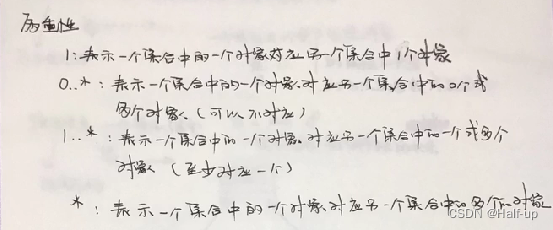 多重性
1:表示一个集合中的一个对象对应另一个集合中1个对象
0..*:表示一个集合中的一个对象对应另一个集合中的0个或
多个对象.(可以不对应)
1..*:表示一个集合中的一个对象对应另一个集合中的一个或多个
对象 (至少对应一个)
*:表示一个集合中的一个对象对应另一个集合中的多个对象
CSDN @Half-up